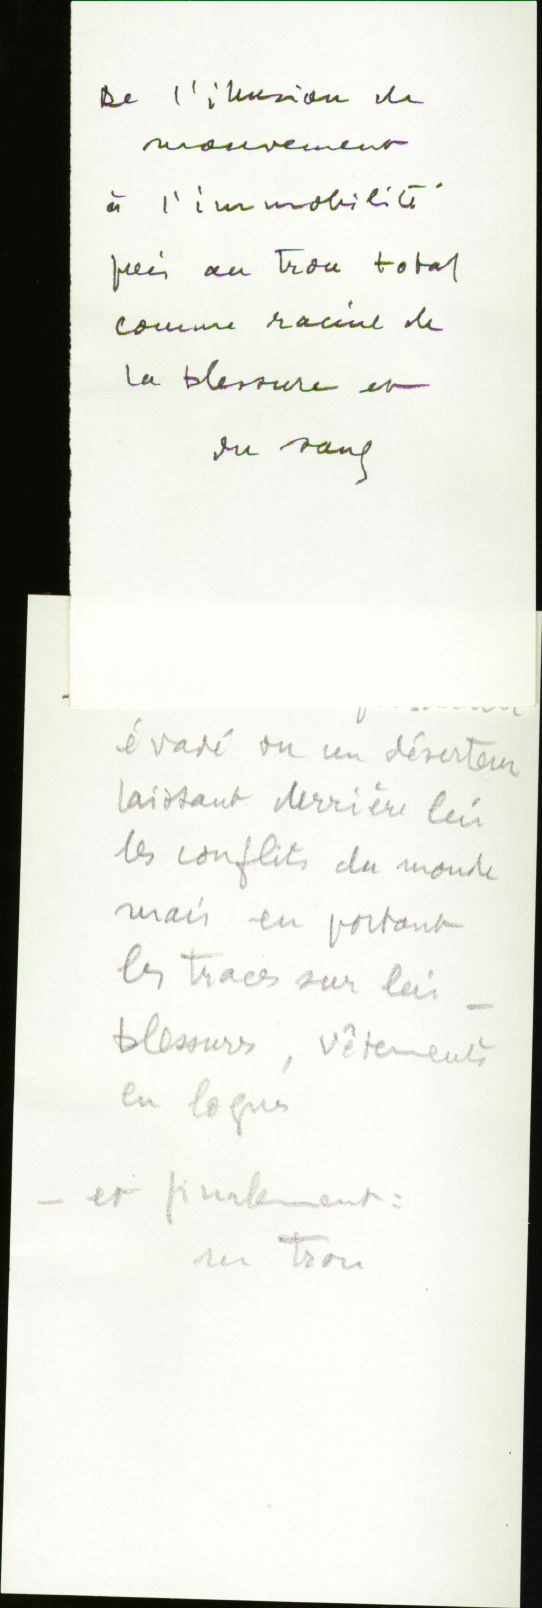 De l'illusion du
mouvement
à l'immobilité
puis au trou total
comme racine de
la blessure et
du sang
évadé ou un déserteur
laissant derrière lui
les conflits du monde
mais en portant
les traces sur lui –
blessures, vêtements
en loques
– et finalement :
un trou